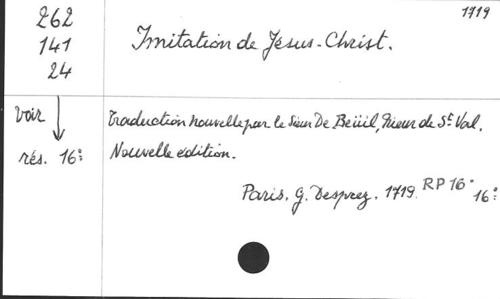 1719
262
141
24
Imitation de Jésus-Christ.
voir
rés. 16°
Traduction nouvelle par le Sieur De Beüil, Prieur de St Val.
Nouvelle édition.
Paris. G. Desprez. 1719. RP 16° 16°